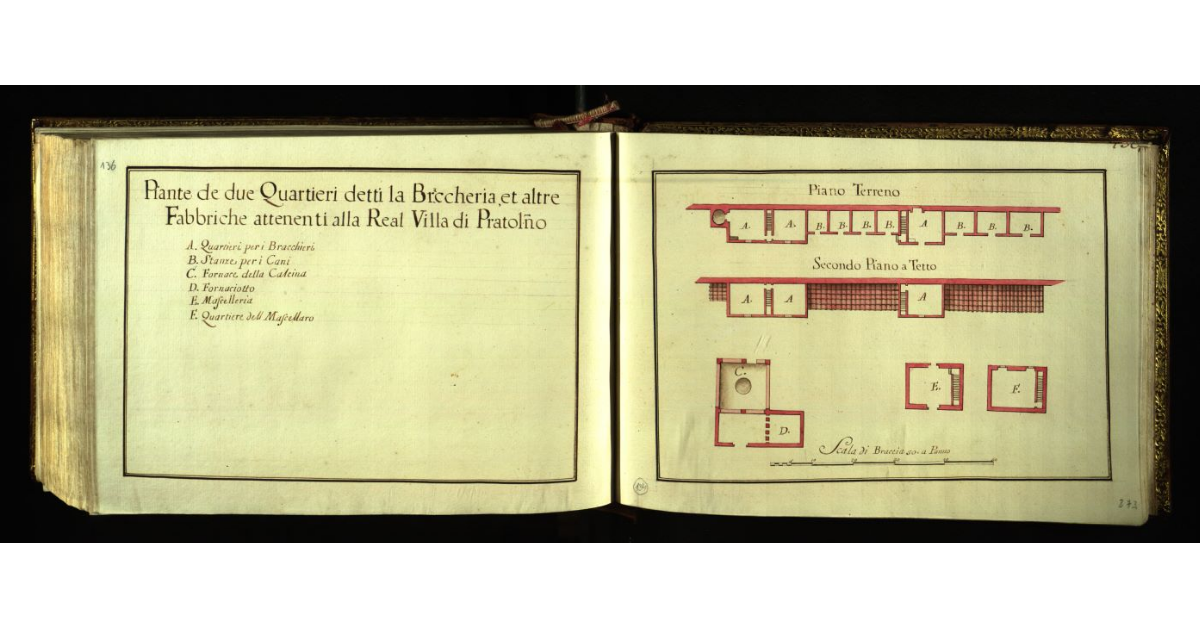 136
Piante de due Quartieri detti la Braccheria, et altre
Fabbriche attenenti alla Real Villa di Pratolño
A. Quartieri per i Bracchieri
B. Stanze per i Cani
C. Fornace della Calcina
D. Fornaciotto
E. Mascelleria
F. Quartiere dell Mascellaro
Piano Terreno
A. A. B. B. B. B. A B. B. B.
Secondo Piano a Tetto
A. A A
C. E. F.
D.
Scala di Braccia a Panno
273